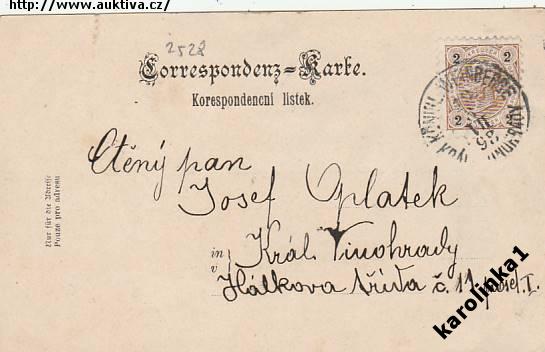 http://www.auktiva.cz/
2528
2 2
2 2
Correspondenz=Karte.
Korespondenční lístek.
Ctěný pan
Josef Oplatek
in
v
Král. Vinohrady
Hálkova třída č. 11 posch. I.
Nur für die Adresse
Pouze pro adresu
karolinka1